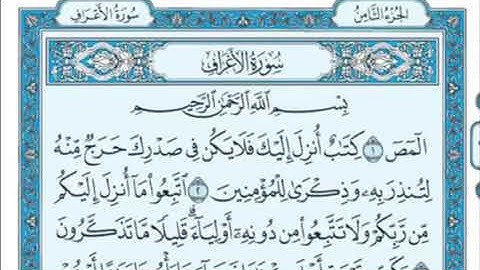 سُورَةُ الأَعْرَافِ
الجُزْءُ الثَّامِنُ
سُورَةُ الأَعْرَافِ
بِسْمِ ٱللَّهِ ٱلرَّحْمَٰنِ ٱلرَّحِيمِ
الٓمٓصٓ ١ كِتَٰبٌ أُنزِلَ إِلَيْكَ فَلَا يَكُن فِى صَدْرِكَ حَرَجٌ مِّنْهُ
لِتُنذِرَ بِهِۦ وَذِكْرَىٰ لِلْمُؤْمِنِينَ ٢ ٱتَّبِعُوا۟ مَآ أُنزِلَ إِلَيْكُم
مِّن رَّبِّكُمْ وَلَا تَتَّبِعُوا۟ مِن دُونِهِۦٓ أَوْلِيَآءَ ۗ قَلِيلًا مَّا تَذَكَّرُونَ